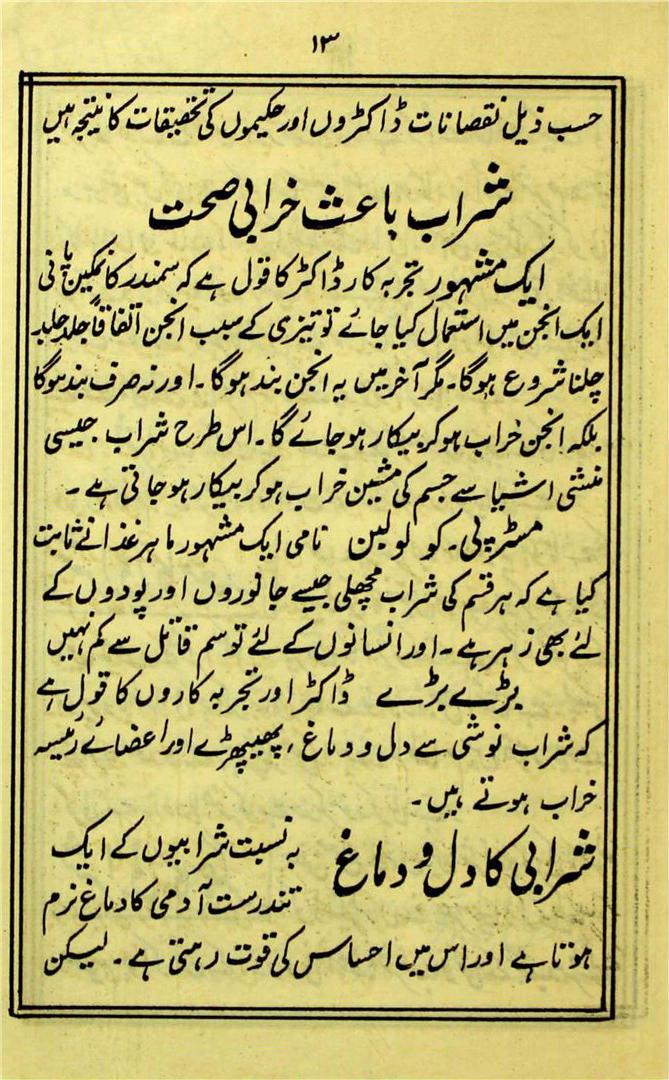 ۱۳
حسب ذیل نقصانات ڈاکٹروں اور حکیموں کی تحقیقات کا نیتجہ ہیں
شراب باعث خرابی صحت
ایک مشہور تجربہ کار ڈاکٹر کا قول ہے کہ سمندر کا نمکین پانی
ایک انجن میں استعمال کیا جائے تو تیزی کے سبب انجن اتفاقاً جلد جلد
چلنا شروع ہوگا۔ مگر آخر میں یہ انجن بند ہوگا۔ اور نہ صرف بند ہوگا
بلکہ انجن خراب ہوکر بیکار ہوجائے گا۔ اس طرح شراب جیسی
منشی اشیا سے جسم کی مشین خراب ہوکر بیکار ہوجاتی ہے۔
مسٹر پی۔ کو لولین نامی ایک مشہور ماہر غذا نے ثابت
کیا ہے کہ ہر قسم کی شراب مچھلی جیسے جانوروں اور پودوں کے
لئے بھی زہر ہے۔ اور انسانوں کے لئے تو سم قاتل سے کم نہیں
بڑے بڑے ڈاکٹر اور تجربہ کاروں کا قول ہے
کہ شراب نوشی سے دل و دماغ ، پھیپھڑے اور اعضائے رئیسہ
خراب ہوتے ہیں۔
شرابی کا دل و دماغ بہ نسبت شرابیوں کے ایک
تندرست آدمی کا دماغ نرم
ہوتا ہے اور اس میں احساس کی قوت رہتی ہے۔ لیکن